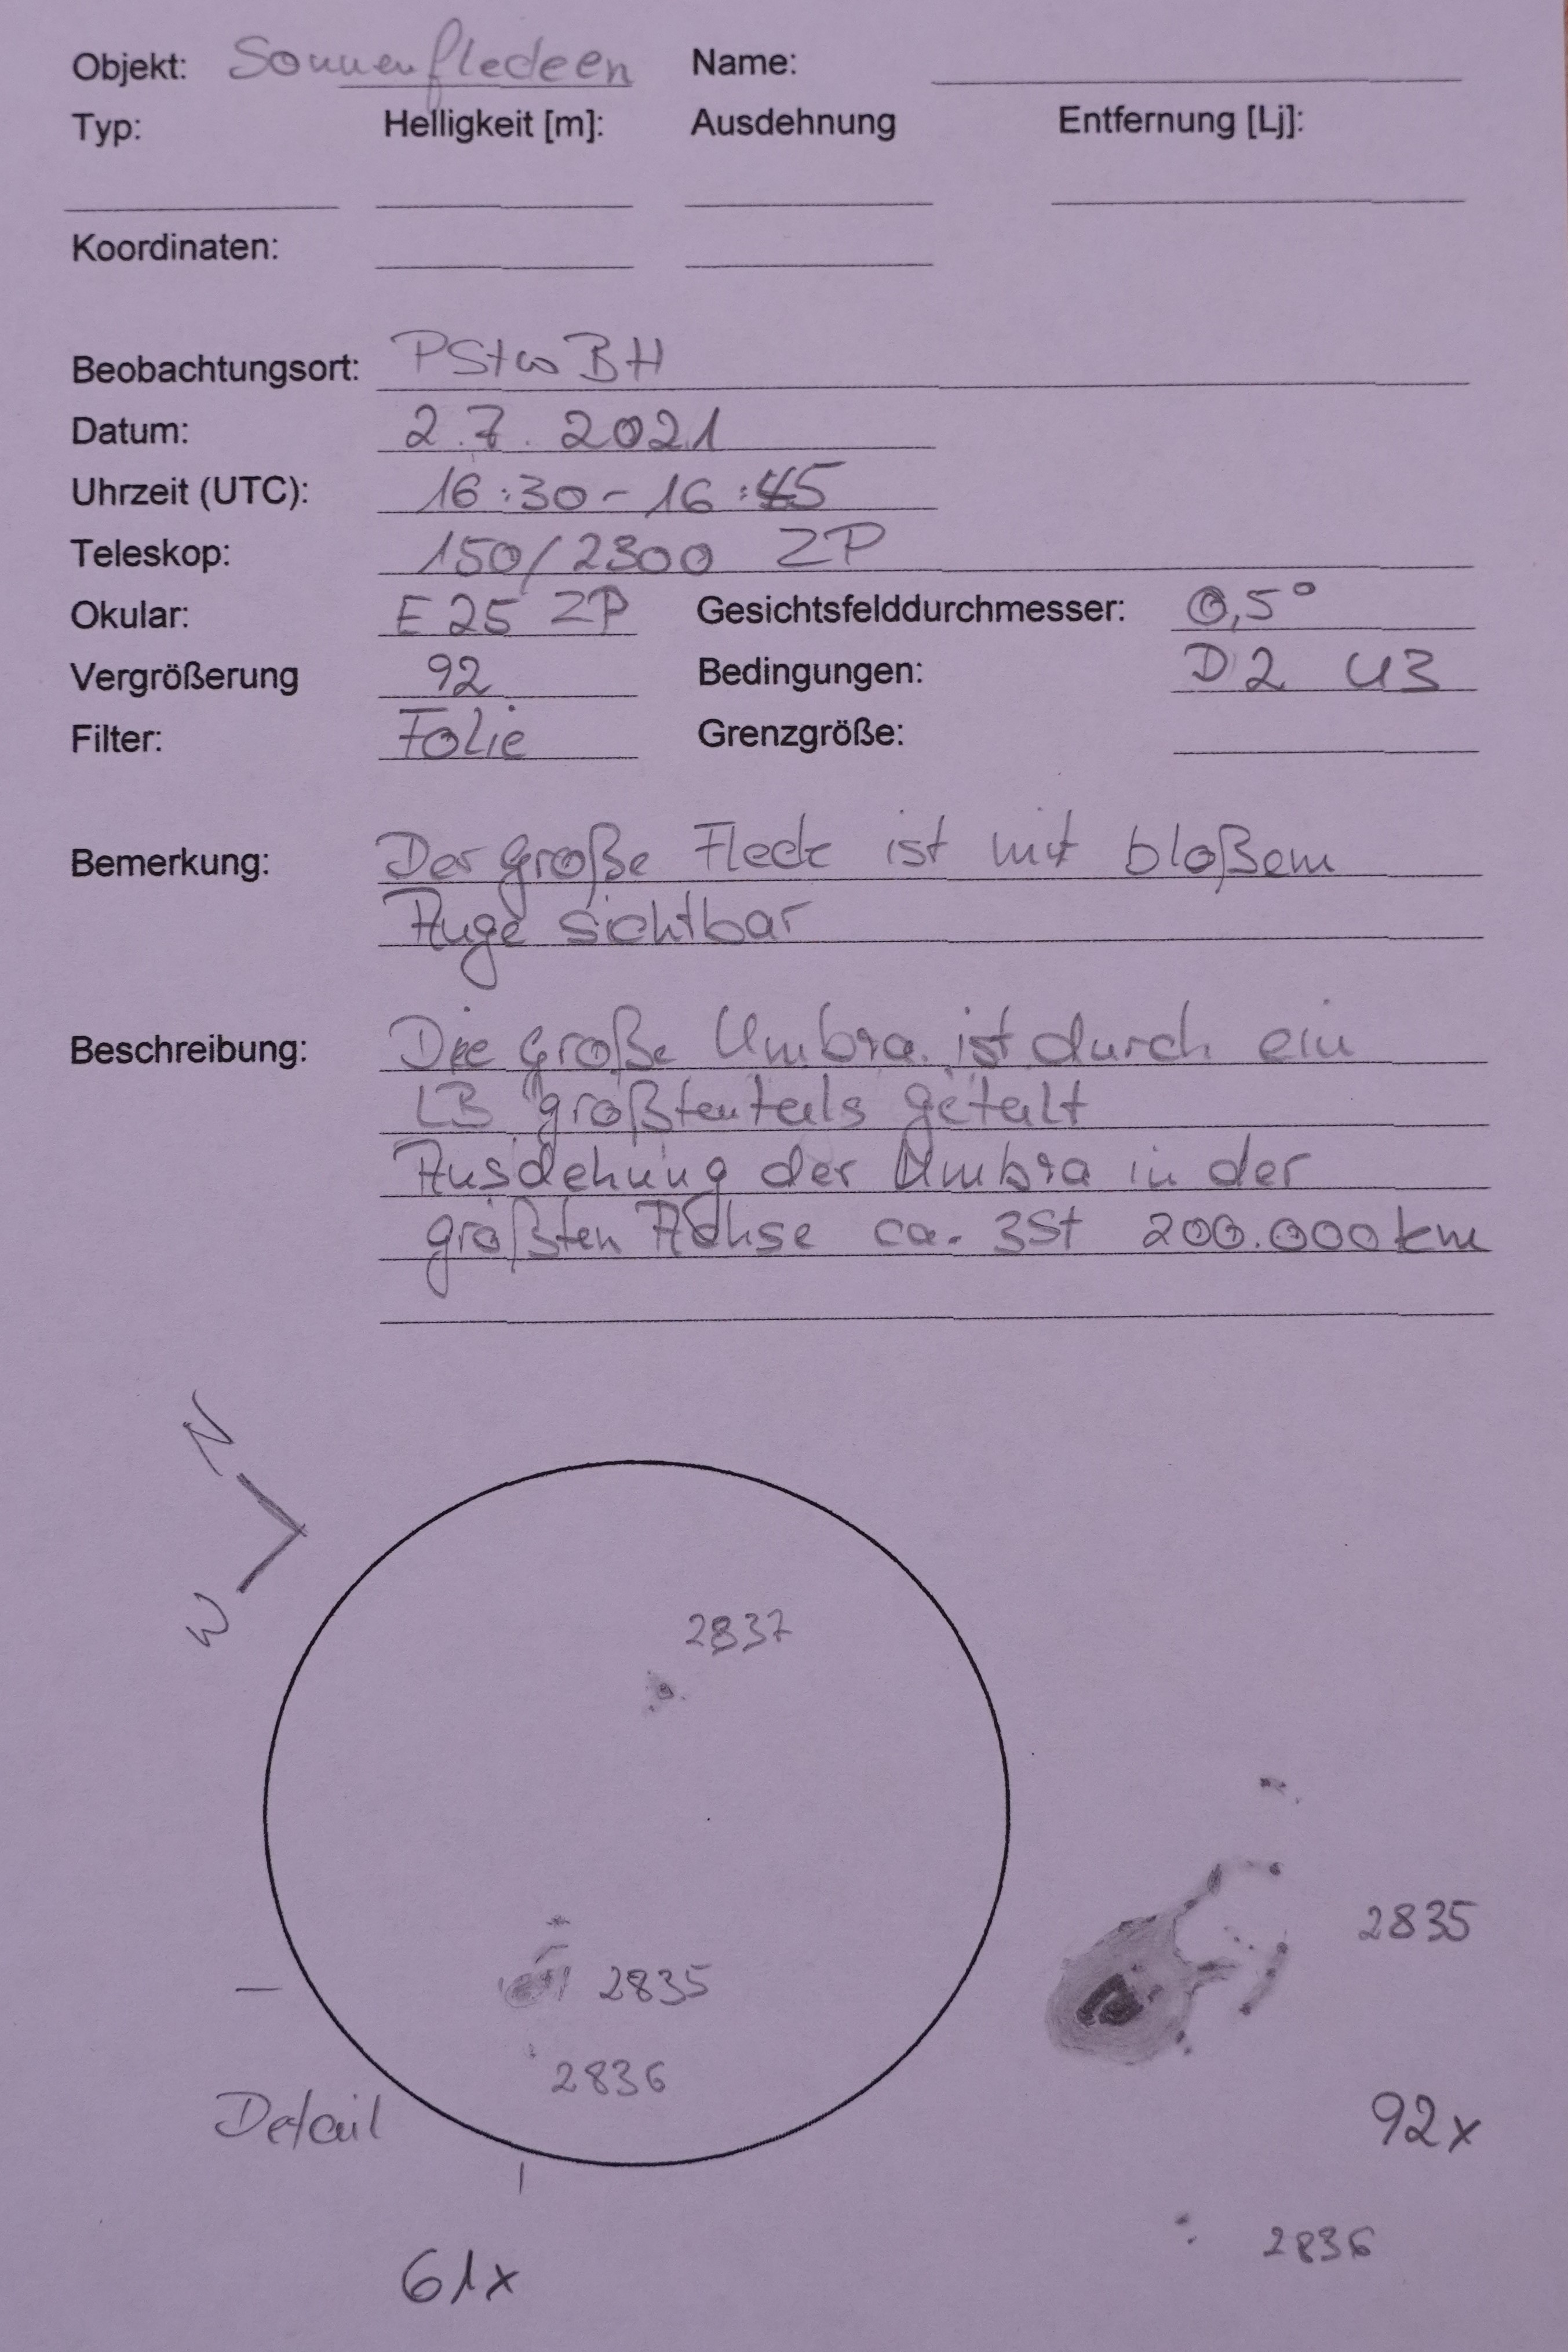 Objekt: Sonnenflecken Name:
Typ: Helligkeit [m]: Ausdehnung Entfernung [Lj]:
Koordinaten:
Beobachtungsort: PStw BH
Datum: 2.7.2021
Uhrzeit (UTC): 16:30-16:45
Teleskop: 150/2300 ZP
Okular: E25 ZP Gesichtsfelddurchmesser: 0,5°
Vergrößerung 92 Bedingungen: D2 U3
Filter: Folie Grenzgröße:
Bemerkung: Der große Fleck ist mit bloßem
Auge sichtbar
Beschreibung: Die große Umbra ist durch ein
LB größtenteils geteilt
Ausdehung der Umbra in der
größten Achse ca. 3St 200.000km
N
W
2837
2835
2835
2836
Detail
92x
2836
61x